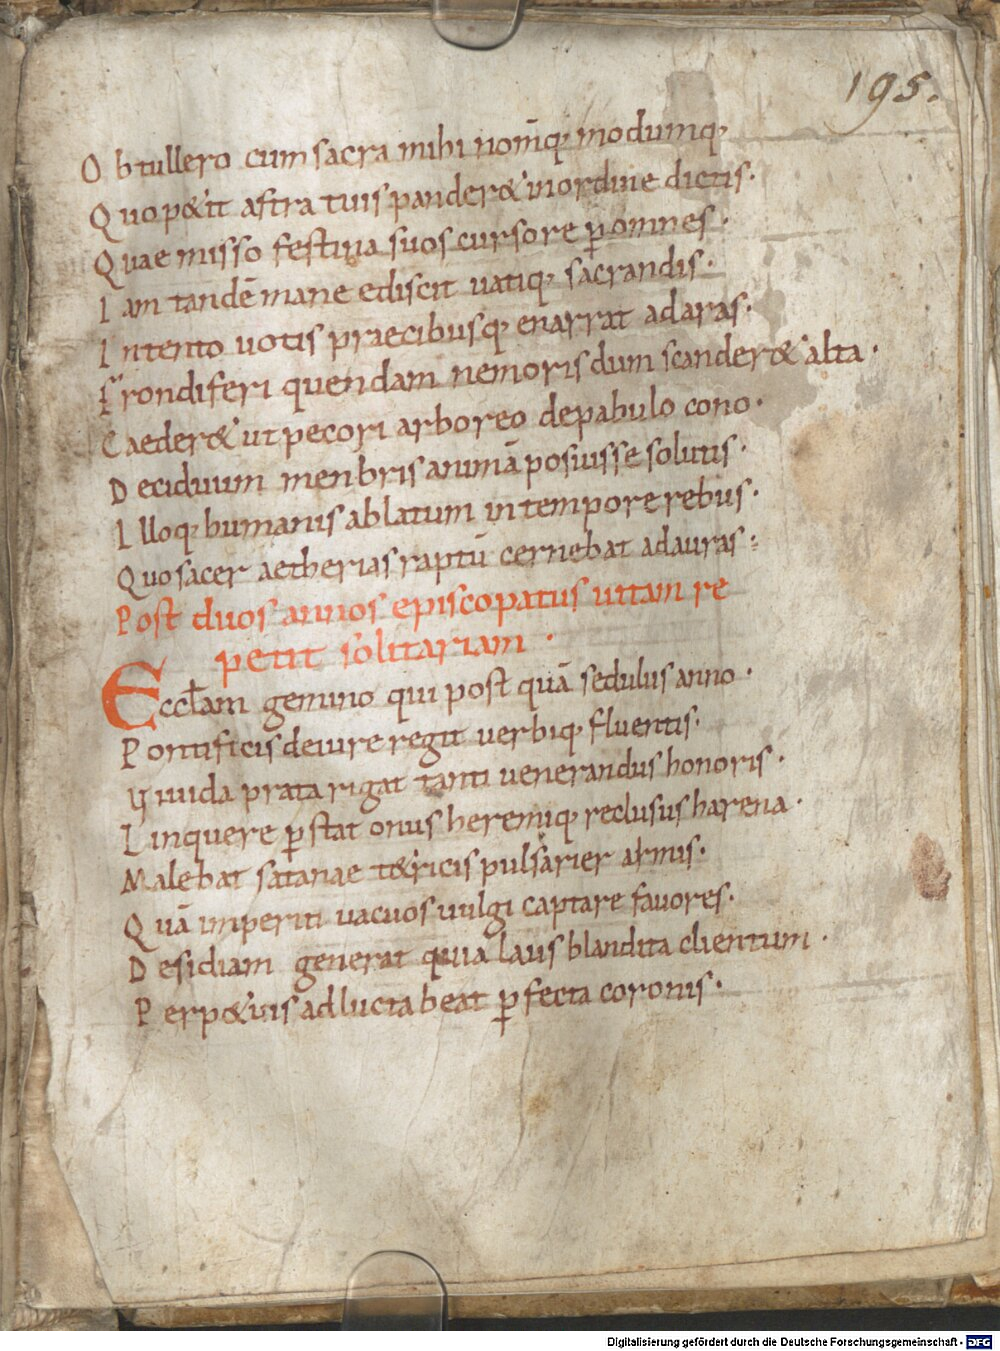 195.
Obtullero cum sacra mihi nom̄q; modumq;
Quo p&iit astra tuis pander& inordine dictis·
Quae misso festina suos cursore ꝑ omnes·
Iam tandē mane ediscit uatiq; sacrandis·
Intento uotis praecibusq; enarrat adaras·
Frondiferi quendam nemoris dum scander& alta·
Caeder& ut pecori arboreo depabulo cono·
Deciduum menbris animā posuisse solutis·
Illoq; humanis ablatum intempore rebus·
Quo sacer aetherias raptū cernebat adauras·
Post duos annos episcopatus uitam re
petit solitariam·
Eccl̄am gemino qui post quā sedulus anno·
Pontificis deiure regit uerbiq; fluentis·
Uiuida prata rigat tanti uenerandus honoris·
Linquere ꝑstat onus heremiq; reclusus harena·
Malebat satanae t&ricis pulsarier armis·
Quā imperiti uacuos uulgi captare fauores·
Desidiam generat quia laus blandita clientum·
Perp&uis adlucta beat ꝑfecta coronis·
Digitalisierung gefördert durch die Deutsche Forschungsgemeinschaft - DFG